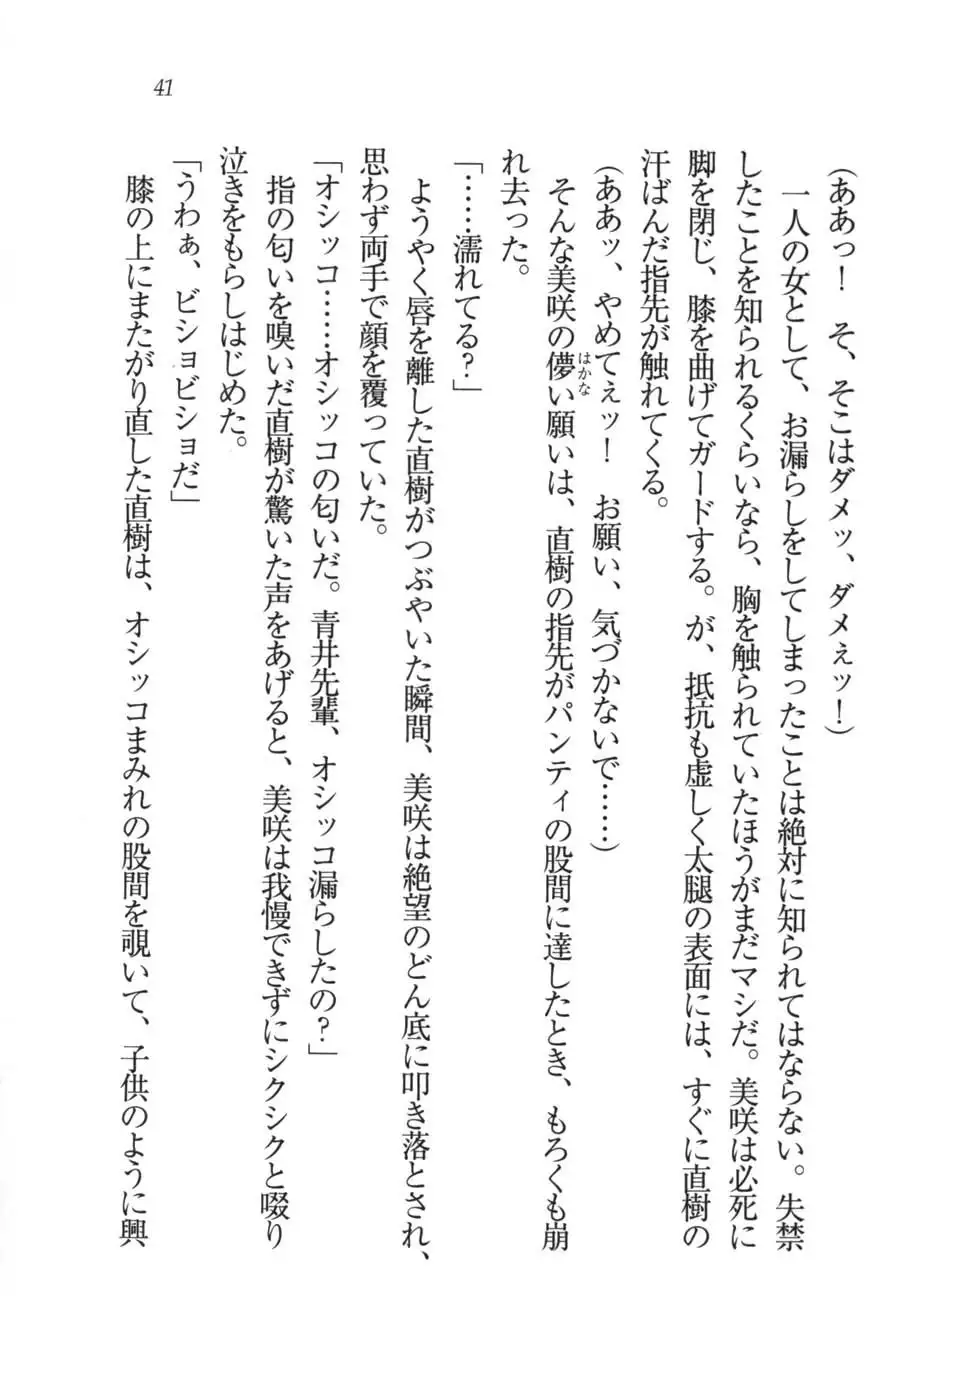 41
(ああっ！　そ、そこはダメッ、ダメぇッ！)
一人の女として、お漏らしをしてしまったことは絶対に知られてはならない。失禁
したことを知られるくらいなら、胸を触られていたほうがまだマシだ。美咲は必死に
脚を閉じ、膝を曲げてガードする。が、抵抗も虚しく太腿の表面には、すぐに直樹の
汗ばんだ指先が触れてくる。
(ああッ、やめてぇッ！　お願い、気づかないで……)
そんな美咲の儚い願いは、直樹の指先がパンティの股間に達したとき、もろくも崩
はかな
れ去った。
「……濡れてる？」
ようやく唇を離した直樹がつぶやいた瞬間、美咲は絶望のどん底に叩き落とされ、
思わず両手で顔を覆っていた。
「オシッコ……オシッコの匂いだ。青井先輩、オシッコ漏らしたの？」
指の匂いを嗅いだ直樹が驚いた声をあげると、美咲は我慢できずにシクシクと啜り
泣きをもらしはじめた。
「うわぁ、ビショビショだ」
膝の上にまたがり直した直樹は、オシッコまみれの股間を覗いて、子供のように興